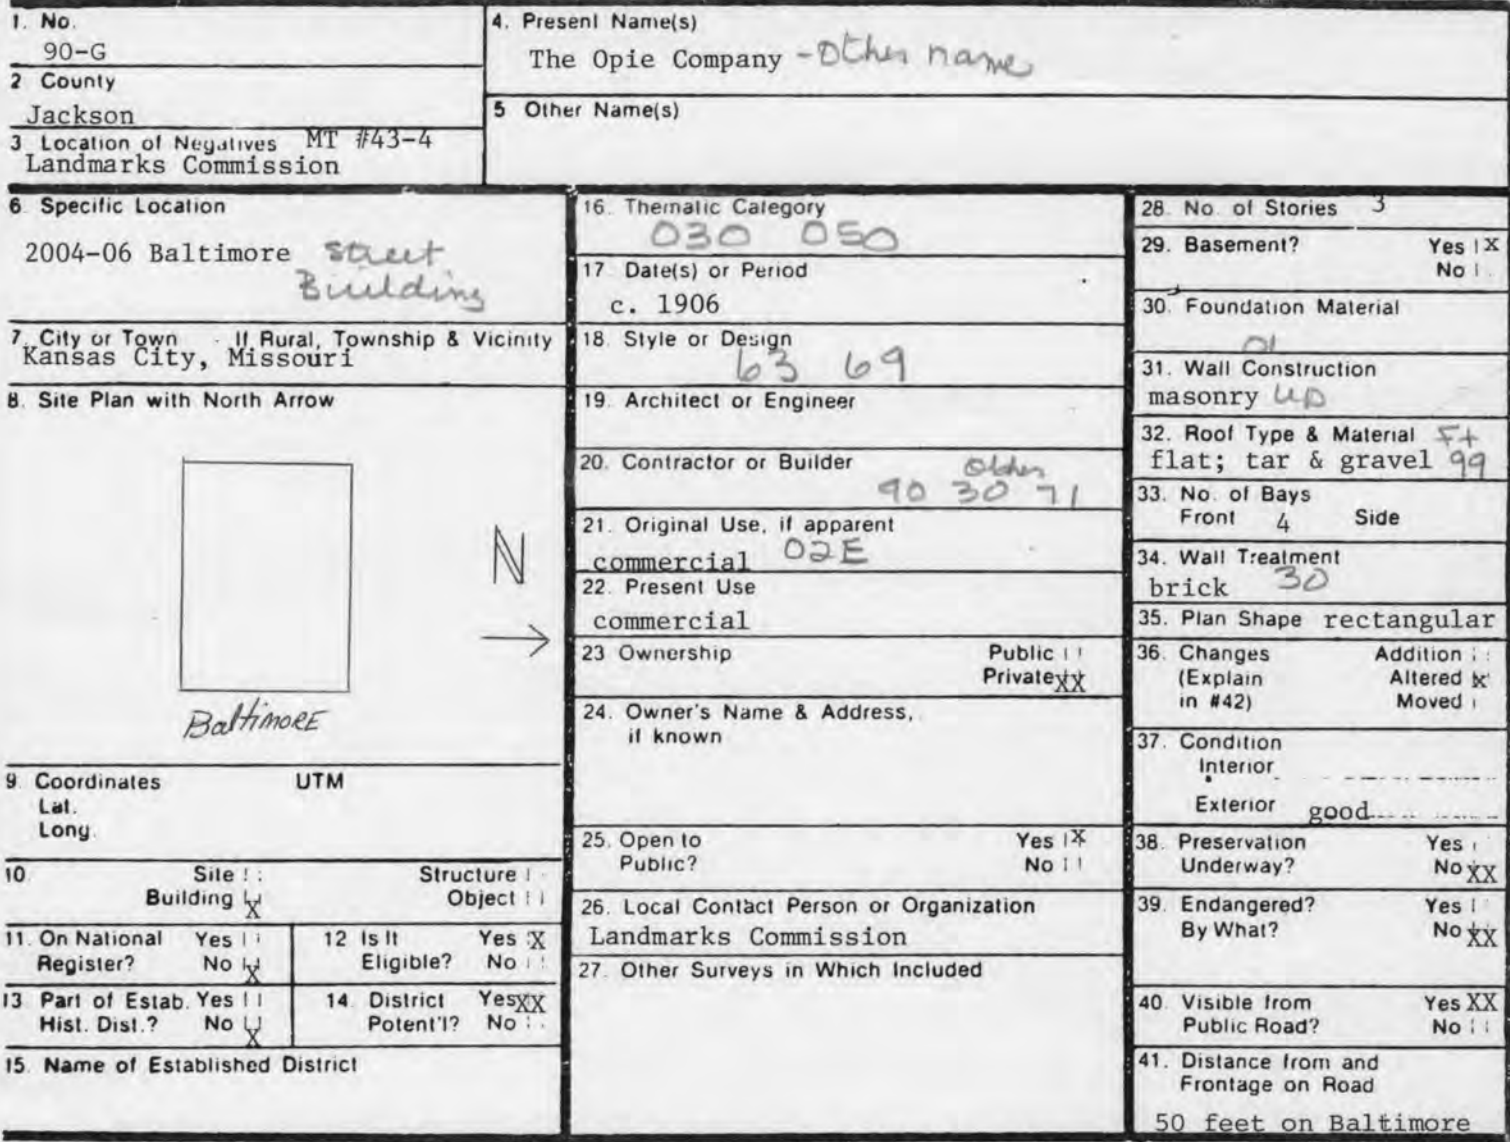 1. No.
90-G
2 County
Jackson
3 Location of Negatives MT #43-4
Landmarks Commission
4. Present Name(s)
The Opie Company - Other name
5 Other Name(s)
6 Specific Location
2004-06 Baltimore Street
Building
7. City or Town If Rural, Township & Vicinity
Kansas City, Missouri
8. Site Plan with North Arrow
N
Baltimore
9 Coordinates UTM
Lat.
Long.
10. Site Structure
Building X Object
11. On National Yes
Register? No X
12 Is It Yes X
Eligible? No
13 Part of Estab. Yes
Hist. Dist.? No X
14. District Yes XX
Potent'l? No
15. Name of Established District
16. Thematic Category
030 050
17. Date(s) or Period
c. 1906
18. Style or Design
63 69
19. Architect or Engineer
20. Contractor or Builder
90 30 71
21. Original Use, if apparent
commercial 02E
22. Present Use
commercial
23 Ownership Public
Private XX
24. Owner's Name & Address,
if known
25. Open to Yes X
Public? No
26. Local Contact Person or Organization
Landmarks Commission
27. Other Surveys in Which Included
28. No. of Stories 3
29. Basement? Yes X
No
30. Foundation Material
01
31. Wall Construction
masonry UD
32. Roof Type & Material Ft
flat; tar & gravel 99
33. No. of Bays
Front 4 Side
34. Wall Treatment
brick 30
35. Plan Shape rectangular
36. Changes Addition
(Explain Altered X
in #42) Moved
37. Condition
Interior
Exterior good
38. Preservation Yes
Underway? No XX
39. Endangered? Yes
By What? No XX
40. Visible from Yes XX
Public Road? No
41. Distance from and
Frontage on Road
50 feet on Baltimore